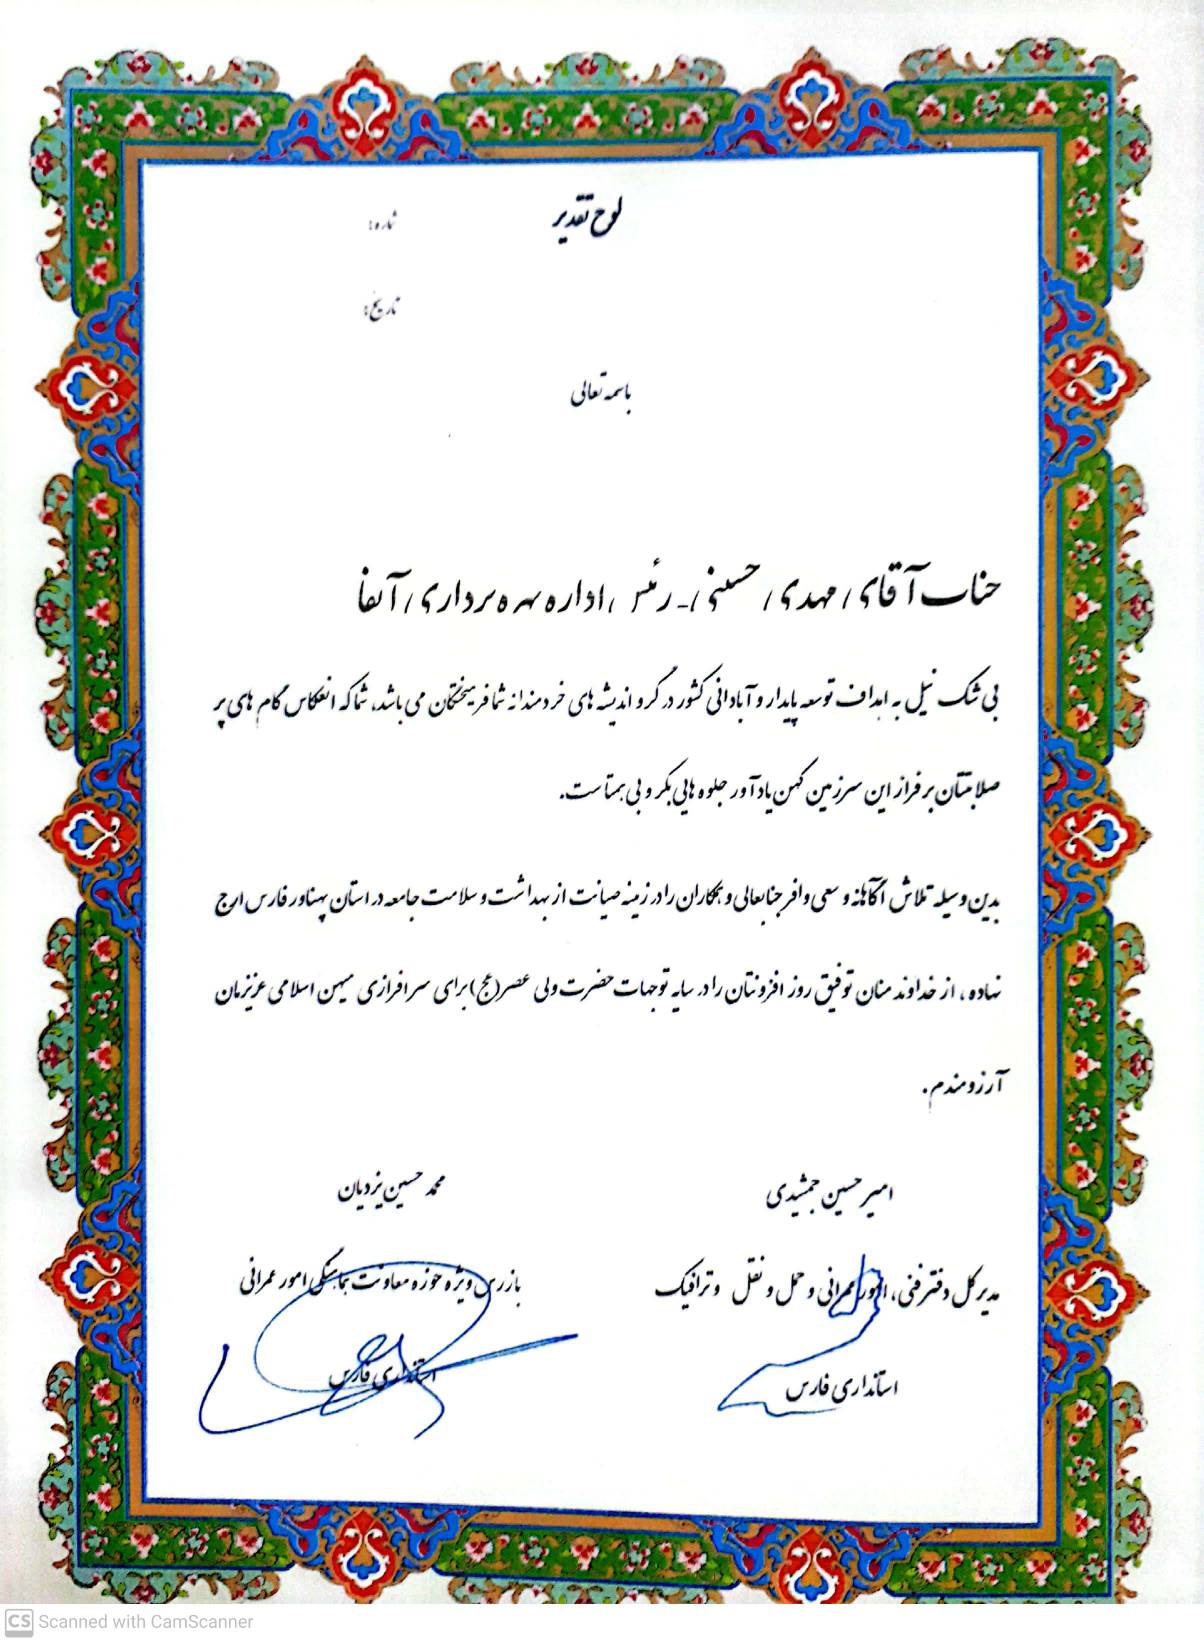 لوح تقدیر
شماره:
تاریخ:
باسمه تعالی
جناب آقای مهدی حسینی - رئیس اداره بهره برداری آبفا
بی شک نیل به اهداف توسعه پایدار و آبادانی کشور در گرو اندیشه های خردمندانه شما فرهیختگان می باشد، شما که انعکاس گام های پر
صلابتتان بر فراز این سرزمین کهن یادآور جلوه هایی بکر و بی همتاست.
بدین وسیله تلاش آگاهانه و سعی وافر جنابعالی و همکاران را در زمینه صیانت از بهداشت و سلامت جامعه در استان پهناور فارس ارج
نهاده، از خداوند منان توفیق روز افزونتان را در سایه توجهات حضرت ولی عصر (عج) برای سرافرازی میهن اسلامی عزیزمان
آرزومندم.
امیر حسین جمشیدی
مدیر کل دفتر فنی، امور عمرانی و حمل و نقل و ترافیک
استانداری فارس
محمد حسین یزدیان
بازرس ویژه حوزه معاونت هماهنگی امور عمرانی
استانداری فارس
CS Scanned with CamScanner